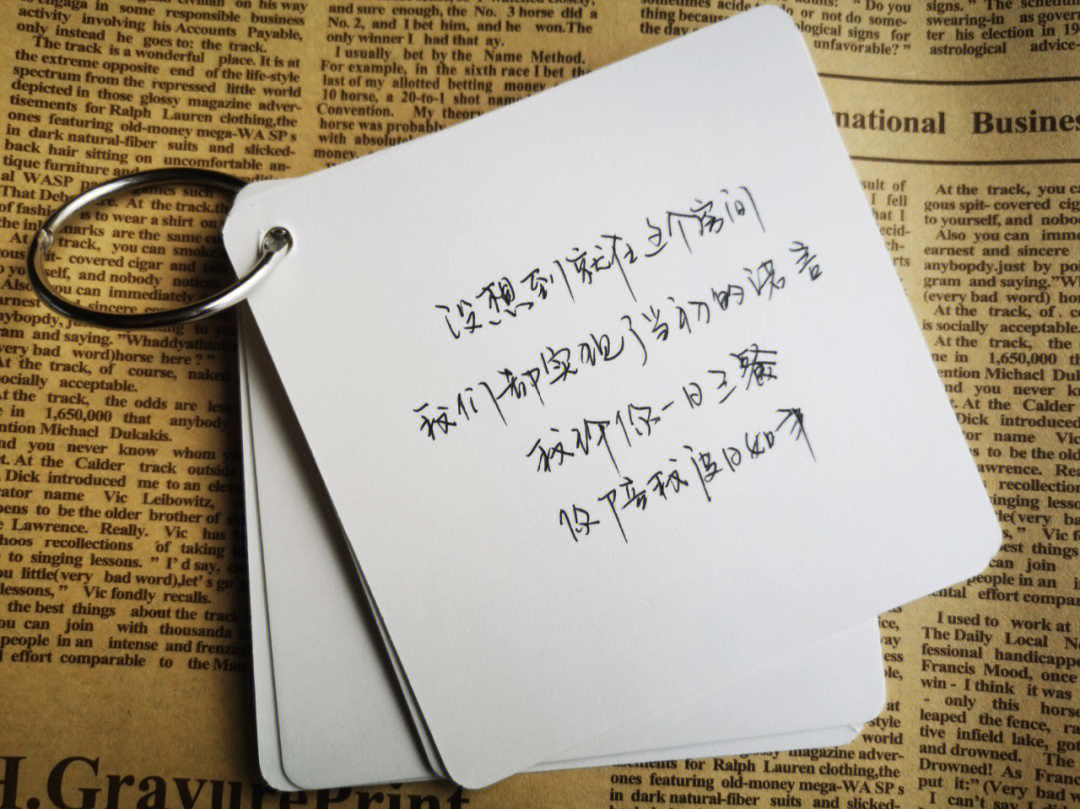 engaga in some responsible business
activity involving his Accounts Payable,
only instead he goes to: the track.
The track is a wonderful place. It is at
the extreme opposite end of the life-style
spectrum from the repressed little world
depicted in those glossy magazine adver-
tisements for Ralph Lauren clothing,the
ones featuring old-money mega-WA SP s
in dark natural-fiber suits and slicked-
back hair sitting on uncomfortable an-
tique furniture and
al WASP
That
of fashi
is to wear a shirt on
marks are the same
track, you can smoke
covered cigar and
self, and nobody notices
you can immediately
sincere
am and saying."Whaddyathink
very bad word)horse here?"
At the track, of course, naked
ocially acceptable.
t the track, the odds are les
e in 1,650,000 that anybody
ntion Michael Dukakis.
nd you never know whom yo
t. At the Calder track outside
Dick introduced me to an ele
ator name Vic Leibowitz,
pens to be the older brother of
e Lawrence. Really. Vic has
hoos recollections of taking
to singing lessons. " I'd say,
ou little(very bad word),let's go
lessons," Vic fondly recalls.
the best things about the track
ou can join with thousanda
people in an intense and frenzie
l effort comparable to the Ma
H.GravurePrint
and sure enough, the No. 3 horse did a
No. 2, and I bet him, and he won.The
only winner I had that ay.
I usually bet by the Name Method.
For example, in the sixth race I bet the
last of my allotted betting money
10 horse, a 20-to-1 shot name
Convention. My theory
horse was probably
with absolute
money.
没想到就在这个房间
我们都实现了当初的诺言
我许你一日三餐
你陪我度日如年
"Do you
thing because
or not do some-
the day
ological signs for
unfavorable?"
signs."
swearing-in as gover
ter his election in 19
astrological advice-
national Business
sult of
I fell
hat I
ecid-
At the track, you ca
gous spit- covered cig
to yourself, and nobo
Also you can imme
earnest and sincere
anybopdy.just by poi
gram and saying."Wh
(every bad word) hor
At the track, of. co
is socially acceptable.
At the track, the
ne in 1,650,000 th
ention Michacl Duka
nd you never kno
At the Calder
Dick introduced
or name Vic
s to be the olde
awrence. Real
recollection
inging lesso
le(very bad
Vic f
est things
can join
people in an i
ntal effort compar
I used to work at
The Daily Local N
fessional handicappe
Francis Mood, once
win - I think it was
- only this horse
leaped the fence, ra
tive infield lake, got
and drowned. The
Drowned! As Franc
put it:" (Very bad w
I can't s
style
world
magazine adver-
for Ralph Lauren clothing,the
ones featuring old-money mega-WA SP s
in dark natural-fiber suits and slicked-